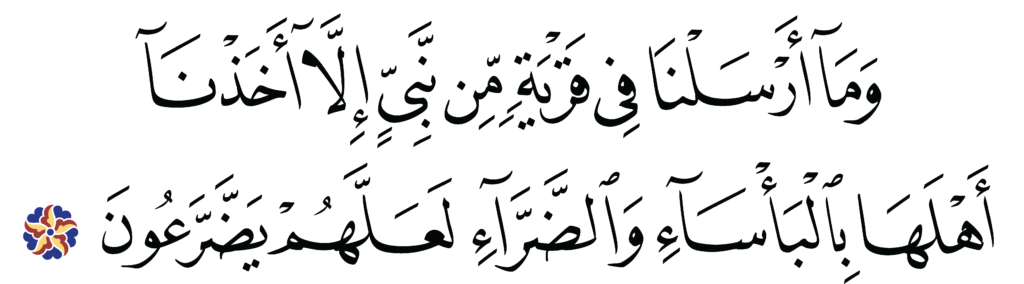 وَمَآ أَرْسَلْنَا فِى قَرْيَةٍ مِّن نَّبِىٍّ إِلَّآ أَخَذْنَآ
أَهْلَهَا بِٱلْبَأْسَآءِ وَٱلضَّرَّآءِ لَعَلَّهُمْ يَضَّرَّعُونَ